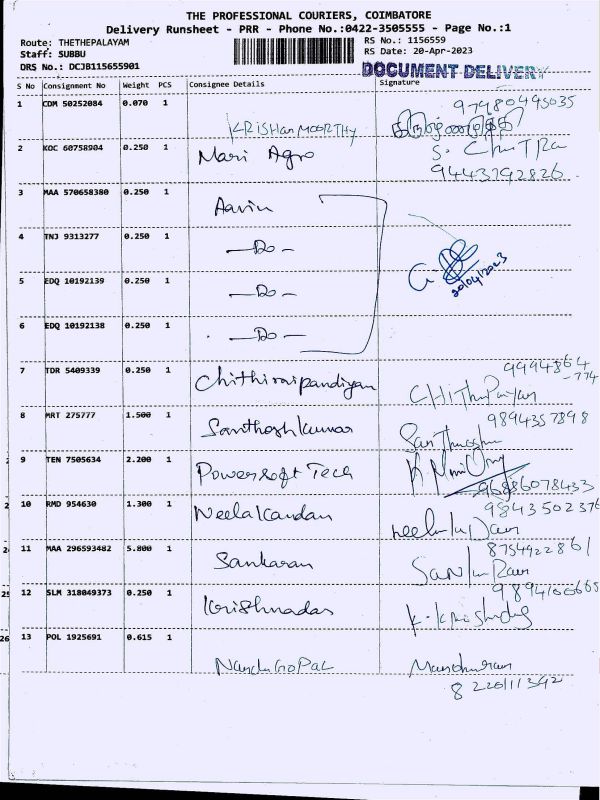 THE PROFESSIONAL COURIERS, COIMBATORE
Delivery Runsheet - PRR - Phone No.:0422-3505555 - Page No.:1
Route: THETHEPALAYAM
RS No.: 1156559
Staff: SUBBU
RS Date: 20-Apr-2023
DRS No.: DCJB115655901
DOCUMENT DELIVERY
S No Consignment No Weight PCS Consignee Details Signature
1 CDM 50252084 0.070 1 KRISHanMOORTHY 97980495035
2 KOC 60758904 0.250 1 Mari Agro S. ChiTRa
9443792826
3 MAA 570658380 0.250 1 Aavin
4 TNJ 9313277 0.250 1 —Do—
20/04/2023
5 EDQ 10192139 0.250 1 —Do—
6 EDQ 10192138 0.250 1 —Do—
7 TDR 5409339 0.250 1 Chithiraipandiyan 9994864
-774
8 MRT 275777 1.500 1 Santhoshkumar 9894357898
9 TEN 7505634 2.200 1 Powersoft Tech
10 RMD 954630 1.300 1 Neelakandan 9843502376
11 MAA 296593482 5.800 1 Sankaran 8754922861
12 SLM 318049373 0.250 1 Krishnadas
K. Krishndas
26 13 POL 1925691 0.615 1 NanduGoPal